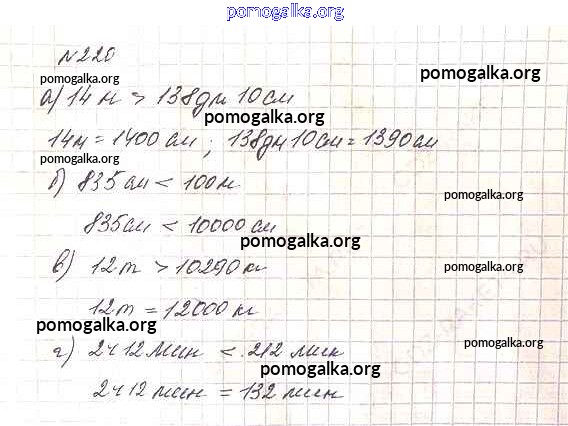 pomogalka.org
№220
pomogalka.org
pomogalka.org
а) 14 м > 138дм 10 см
pomogalka.org
14м = 1400 см ; 138дм 10см = 1390см
pomogalka.org
б) 835 см < 100м
pomogalka.org
835см < 10000 см
pomogalka.org
в) 12т > 10290 кг
pomogalka.org
12т = 12000 кг
pomogalka.org
pomogalka.org
г) 2ч 12 мин < 212 мин
pomogalka.org
2ч 12 мин = 132 мин